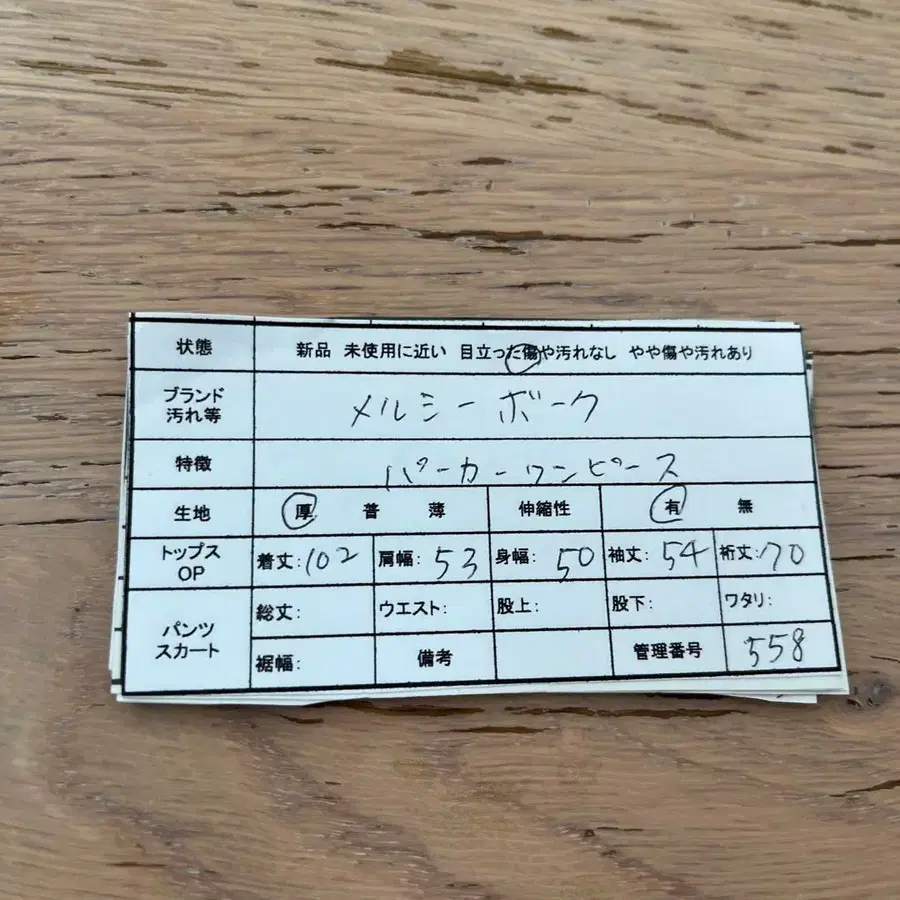 状態 新品 未使用に近い 目立った傷や汚れなし やや傷や汚れあり
ブランド
汚れ等
メルシーボーク
特徴 パーカーワンピース
生地 厚 普 薄 伸縮性 有 無
トップス
OP
着丈:102 肩幅:53 身幅:50 袖丈:54 裄丈:70
パンツ
スカート
総丈: ウエスト: 股上: 股下: ワタリ:
裾幅: 備考 管理番号 558